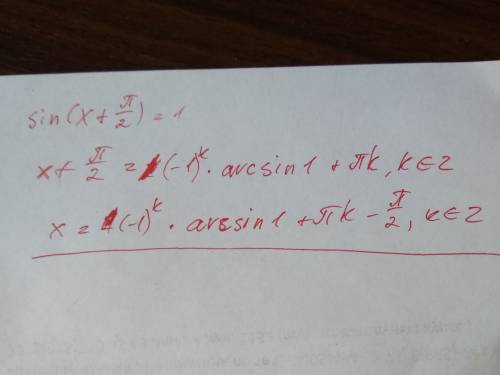 sin(x + π/2) = 1
x + π/2 = (-1)^k · arcsin1 + πk, k ∈ Z
x = (-1)^k · arcsin1 + πk - π/2, k ∈ Z